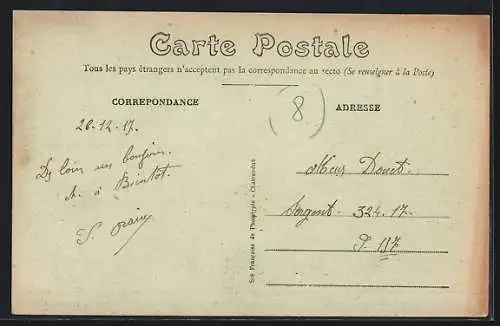 Carte Postale
Tous les pays étrangers n'acceptent pas la correspondance au recto (Se renseigner à la Poste)
CORREPONDANCE
8
ADRESSE
26-12-17.
De loin un bonjour.
et à Bientôt.
S.
Mens Douet.
Sergent. 324. 17.
P. 117
Sté Française de Phototypie - Chateaudun